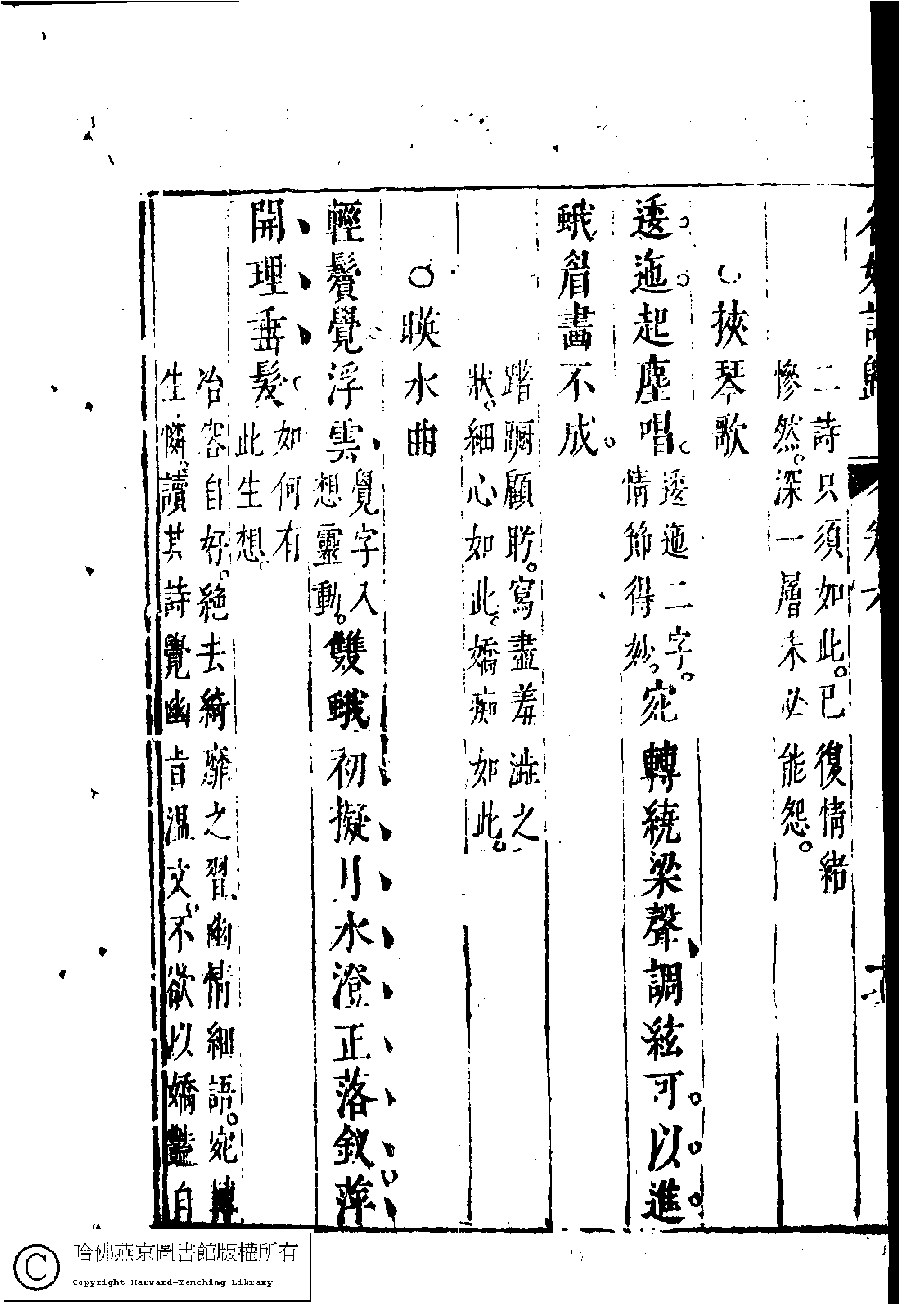 名媛詩歸
二詩只須如此。已復情緒
慘然。深一層未必能怨。
○挾琴歌
逶迤起塵唱。
逶迤二字。
情節得妙。
宛轉繞梁聲調絃可以進
蛾眉畫不成。
踏躕顧盻。寫盡羞澁之
狀。細心如此。嬌痴如此。
○暎水曲
輕鬢覺浮雲
覺字入
想靈動。
雙蛾初擬月水澄正落釵萍
開理垂髮
如何有
此生想。
冶容自好。絶去綺靡之習幽情細語。宛轉
生憐。讀其詩覺幽旨溫文。不欲以嬌豔自
哈佛燕京圖書館版權所有
Copyright Harvard-Yenching Library